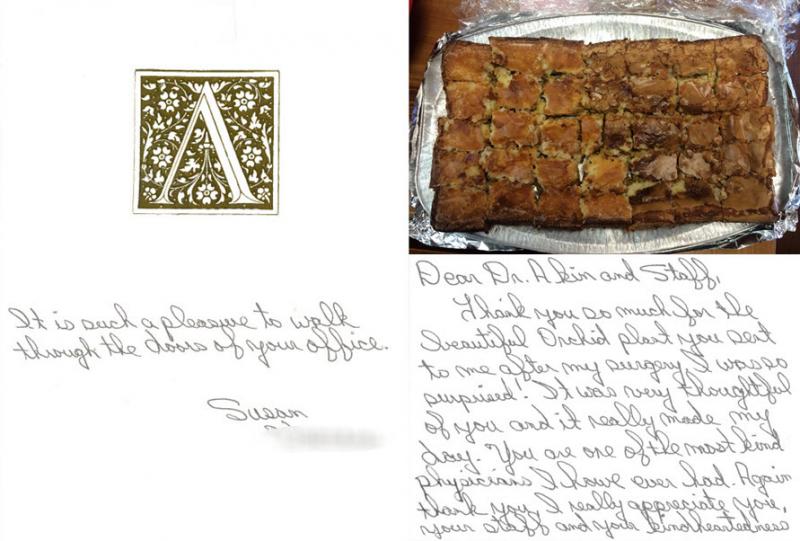 A
It is such a pleasure to walk
through the doors of your office.
Susan
Dear Dr. Akin and Staff,
Thank you so much for the
beautiful Orchid plant you sent
to me after my surgery. I was so
surprised! It was very thoughtful
of you and it really made my
day. You are one of the most kind
physicians I have ever had. Again
thank you, I really appreciate you,
your staff and your kindheartedness